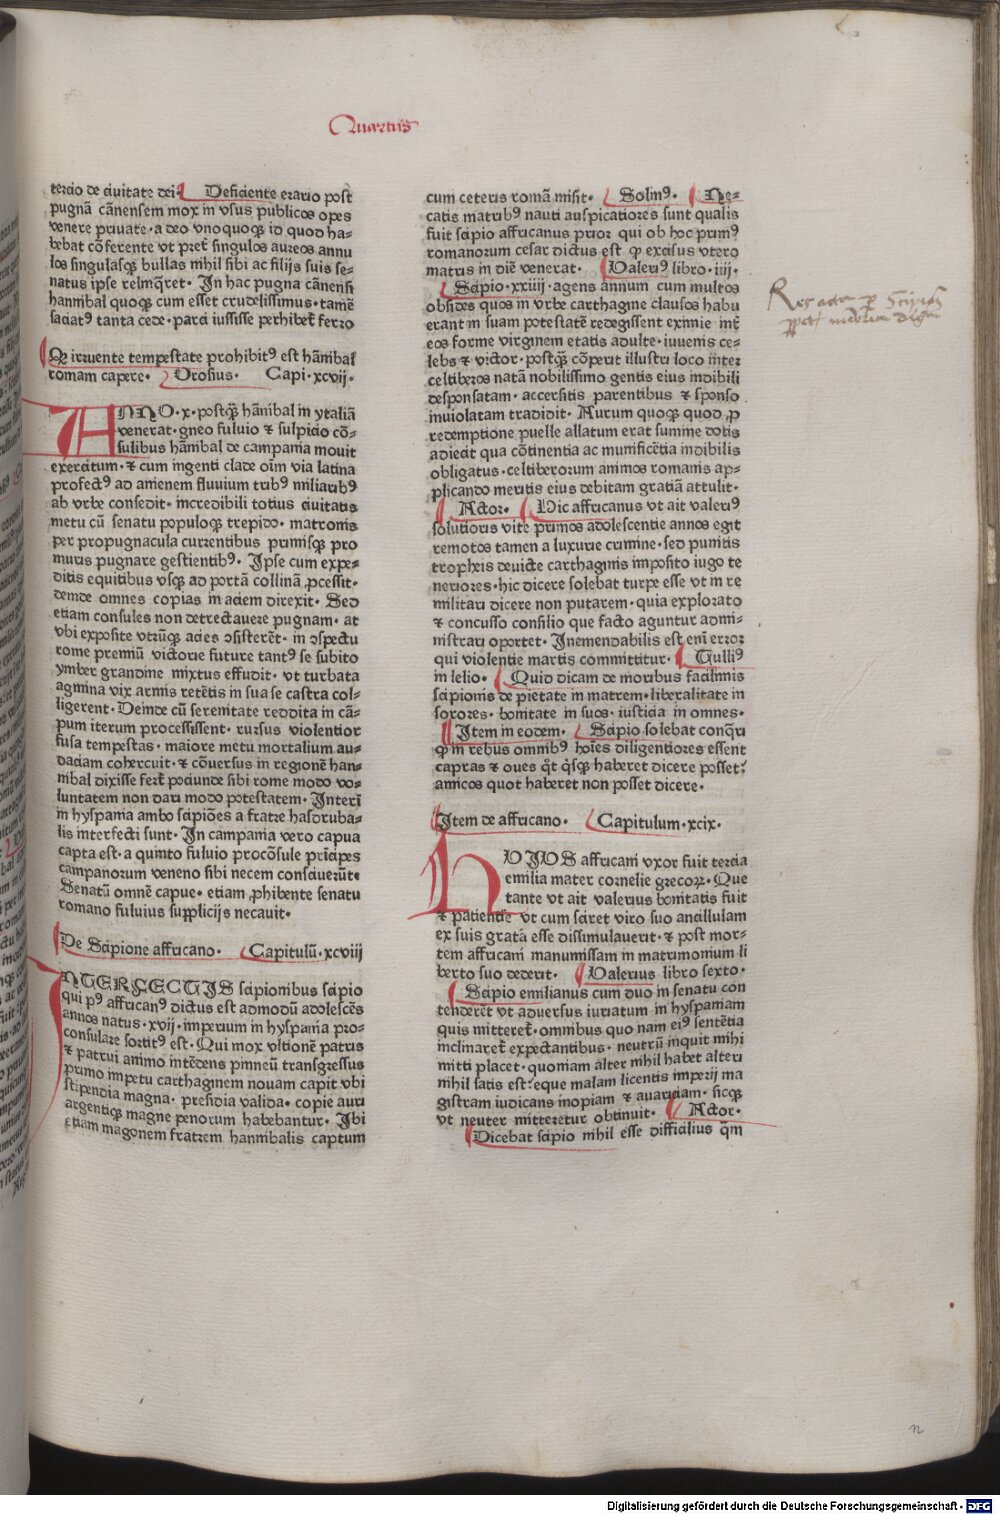 Quartus
tercio de ciuitate dei· Deficiente erario post
pugnā cānensem mox in vsus publicos opes
venere priuate· a deo vnoquoqꝫ id quod ha-
bebat cōferente vt pret̄ singulos aureos annu
los singulasqꝫ bullas nihil sibi ac filijs suis se-
natus ipse relinq̄ret· In hac pugna cānensi
hannibal quoqꝫ cum esset crudelissimus· tamē
saciatꝰ tanta cede· parci iussisse perhibet̄ ferro
Qꝫ irruente tempestate prohibitꝰ est hānibal
romam capere· Orosius· Capi·xcvij·
ANNO·x·postqꝫ̄ hānibal in ytaliā
venerat· gneo fuluio ⁊ sulpicio cō-
sulibus hānibal de campania mouit
exercitum· ⁊ cum ingenti clade oīm via latina
profectꝰ ad anienem fluuium tribꝰ miliaribꝰ
ab vrbe consedit· incredibili totius ciuitatis
metu cū senatu populoqꝫ trepido· matronis
per propugnacula currentibus primisqꝫ pro
muris pugnare gestientibꝰ· Ipse cum expe-
ditis equitibus vsqꝫ ad portā collinā ꝓcessit·
deinde omnes copias in aciem direxit· Sed
etiam consules non detrectauere pugnam· at
vbi exposite vtriqꝫ acies ↄsisterēt· in ↄspectu
rome premiū victorie future tantꝰ se subito
ymber grandine mixtus effudit· vt turbata
agmina vix armis retētis in sua se castra col-
ligerent· Deinde cū serenitate reddita in cā-
pum iterum processissent· rursus violentior
fusa tempestas· maiore metu mortalium au-
daciam cohercuit· ⁊ cōuersus in regionē han-
nibal dixisse fert̄ pociunde sibi rome modo vo-
luntatem non dari modo potestatem· Interī
in hyspania ambo scipiōes a fratre hasdruba-
lis interfecti sunt· In campania vero capua
capta est· a quinto fuluio procōsule prīcipes
campanorum veneno sibi necem consciuerūt·
Senatū omnē capue· etiam ꝓhibente senatu
romano fuluius supplicijs necauit·
De Scipione affricano· Capitulū·xcviij
INTERFECTIS scipionibus scipio
qui pꝰ affricanꝰ dictus est admodū adolescēs
annos natus·xvij·imperium in hyspania pro-
consulare sortitꝰ est· Qui mox vltionē patris
⁊ patrui animo intēdens pirineū transgressus
primo impetu carthaginem nouam capit vbi
stipendia magna· presidia valida· copie auri
argentiqꝫ magne penorum habebantur· Ibi
etiam magonem fratrem hannibalis captum
cum ceteris romā misit· Solinꝰ· Ne-
catis matribꝰ nati auspicatiores sunt qualis
fuit scipio affricanus prior qui ob hoc primꝰ
romanorum cesar dictus est ꝙ excisus vtero
matris in diē venerat· Valeriꝰ libro·iiij·
Scipio·xxiiij·agens annum cum multos
obsides quos in vrbe carthagine clausos habu
erant in suam potestatē redegissent eximie int̄
eos forme virginem etatis adulte· iuuenis ce-
lebs ⁊ victor· postqꝫ̄ cōperit illustri loco inter
celtiberos natā nobilissimo gentis eius indibili
desponsatam· accersitis parentibus ⁊ sponso
inuiolatam tradidit· Aurum quoqꝫ quod ꝓ
redemptione puelle allatum erat summe dotis
adiecit qua cōtinentia ac munificētia indibilis
obligatus· celtiberorum animos romanis ap-
plicando meritis eius debitam gratiā attulit·
Actor· Hic affricanus vt ait valeriꝰ
solutioris vite primos adolescentie annos egit
remotos tamen a luxurie crimine· sed punicis
tropheis deuicte carthaginis imposito iugo te
neriores· hic dicere solebat turpe esse vt in re
militari dicere non putarem· quia explorato
⁊ concusso consilio que facto aguntur admi-
nistrari oportet· Inemendabilis est enī error
qui violentie martis committitur· Tulliꝰ
in lelio· Quid dicam de moribus facilimis
scipionis de pietate in matrem· liberalitate in
sorores· bonitate in suos· iusticia in omnes·
Item in eodem· Scipio solebat conq̄ri
ꝙ in rebus omnibꝰ hoīes diligentiores essent
capras ⁊ oues q̄t q̄sqꝫ haberet dicere posset?
amicos quot haberet non posset dicere·
Item de affricano· Capitulum·xcix·
HVIVS affricani vxor fuit tercia
emilia mater cornelie grecoꝝ· Que
tante vt ait valerius bonitatis fuit
⁊ patientie vt cum sciret viro suo ancillulam
ex suis gratā esse dissimulauerit· ⁊ post mor-
tem affricani manumissam in matrimonium li
berto suo dederit· Valerius libro sexto·
Scipio emilianus cum duo in senatu con
tenderēt vt aduersus iuriatum in hyspaniam
quis mitteret̄· omnibus quo nam eiꝰ sentētia
inclinaret̄ expectantibus· neutrū inquit mihi
mitti placet· quoniam alter nihil habet alteri
nihil satis est? eque malam licentis imperij ma
gistram iudicans inopiam ⁊ auariciam· sicqꝫ
vt neuter mitteretur obtinuit· Actor·
Dicebat scipio nihil esse difficilius q̄m
Digitalisierung gefördert durch die Deutsche Forschungsgemeinschaft · DFG